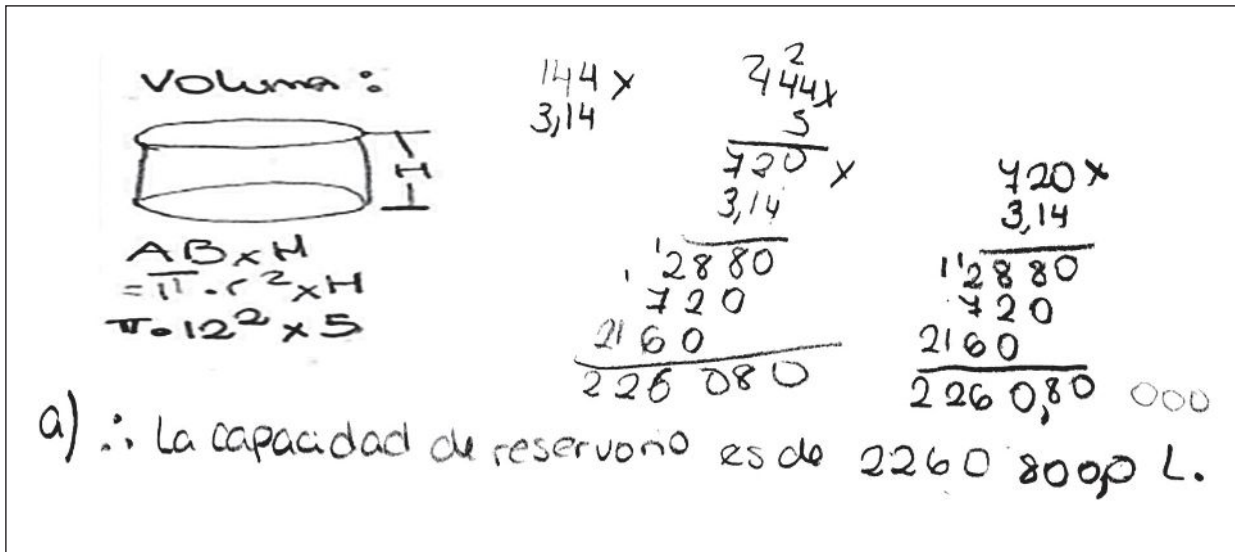 Volumen:
H
AB x H
= π . r² x H
π . 12² x 5
144 x
3,14
2
144 x
5
720 x
3,14
1 1 2880
720
2160
226 080
720 x
3,14
1 1 2880
720
2160
2260,80 000
a) ∴ La capacidad de reservorio es de 2260 800,0 L.